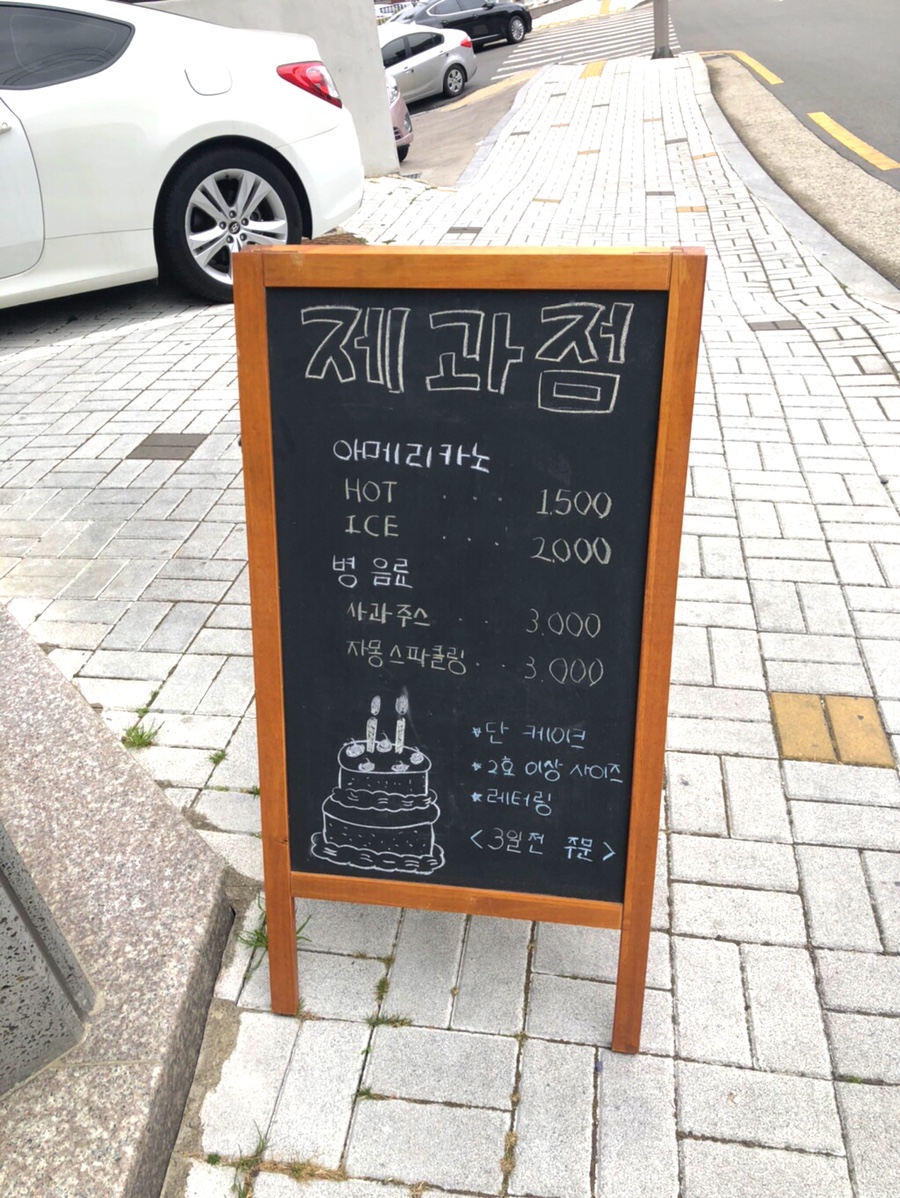 제과점
아메리카노
HOT ... 1.500
ICE ... 2.000
병 음료
사과주스 .. 3.000
자몽스파클링.. 3.000
*단 케이크
*2호 이상 사이즈
*레터링
<3일전 주문>